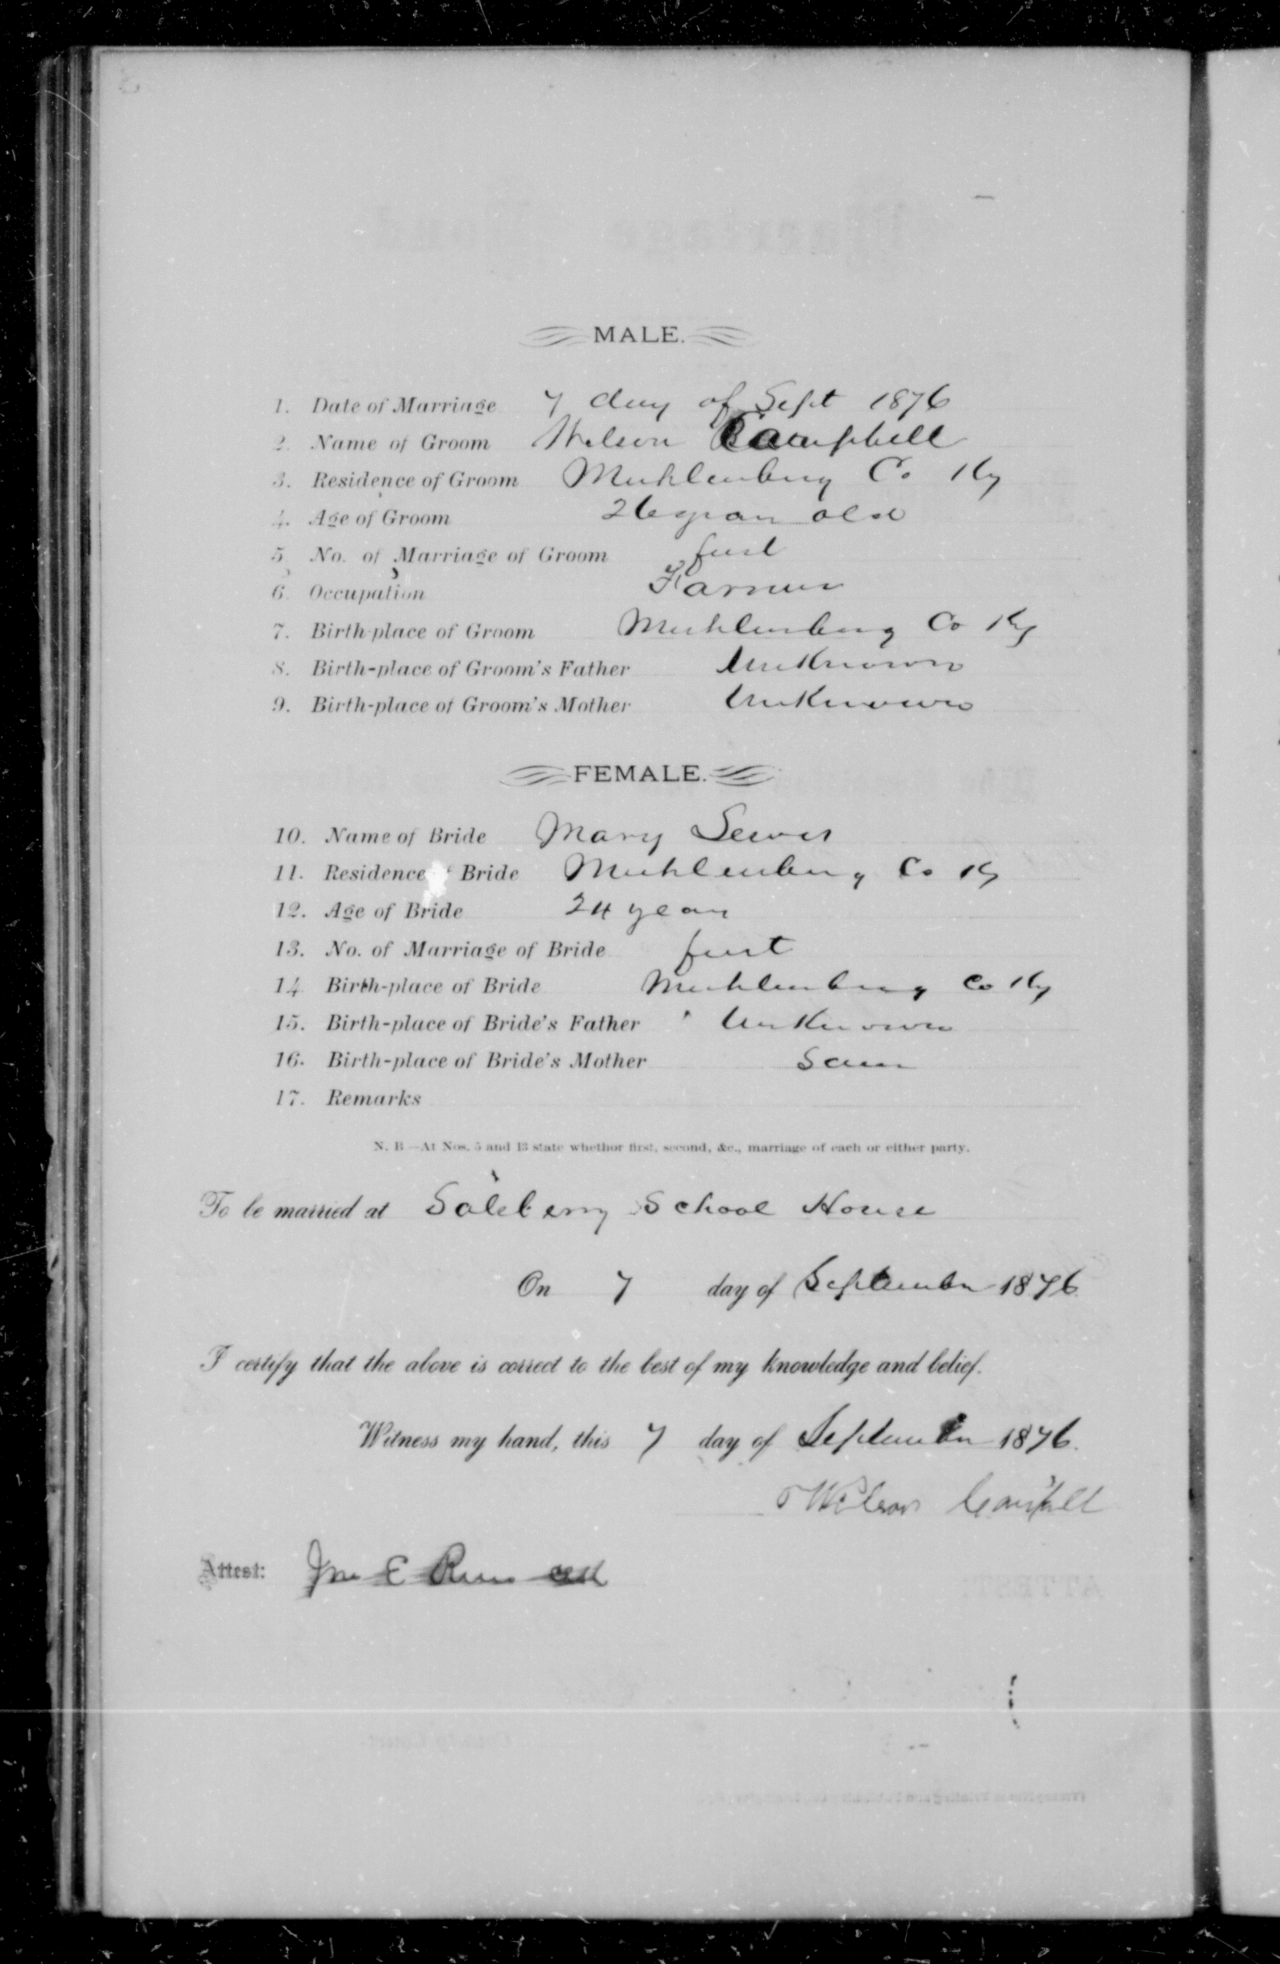 MALE.
1. Date of Marriage 7 day of Sept 1876
2. Name of Groom Wilson Campbell
3. Residence of Groom Muhlenberg Co Ky
4. Age of Groom 26 years old
5. No. of Marriage of Groom first
6. Occupation Farmer
7. Birth-place of Groom Muhlenberg Co Ky
8. Birth-place of Groom's Father Unknown
9. Birth-place of Groom's Mother Unknown
FEMALE.
10. Name of Bride Mary Lewis
11. Residence of Bride Muhlenberg Co Ky
12. Age of Bride 24 years
13. No. of Marriage of Bride first
14. Birth-place of Bride Muhlenberg Co Ky
15. Birth-place of Bride's Father Unknown
16. Birth-place of Bride's Mother Same
17. Remarks
N. B—At Nos. 5 and 13 state whether first, second, &c., marriage of each or either party.
To be married at School House
On 7 day of September 1876
I certify that the above is correct to the best of my knowledge and belief.
Witness my hand, this 7 day of September 1876.
Wilson
Attest: Jno E
ATTEST: